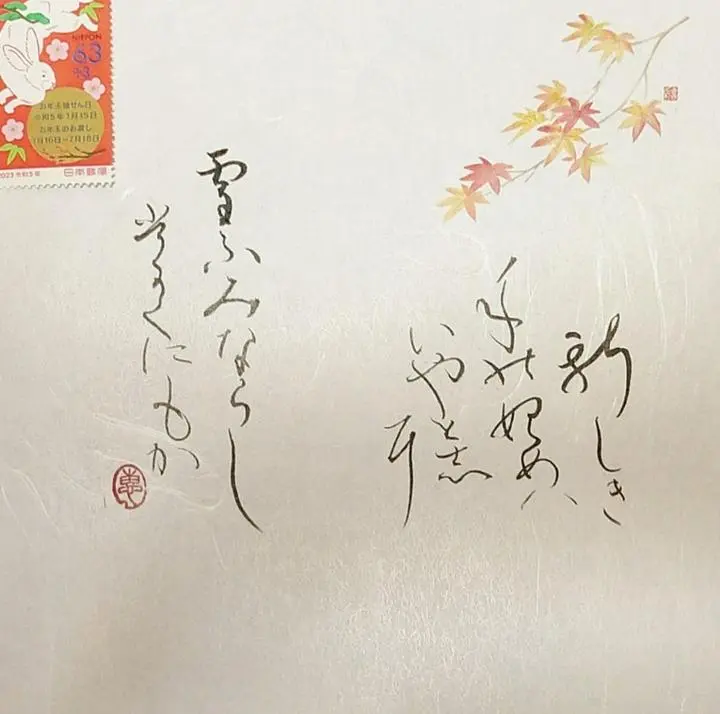 新しき
年の初めハ
いやと志
耳
雪ふみならし
常かくにもか
恵
NIPPON
63
+3
お年玉抽せん日
令和5年1月15日
お年玉のお渡し
1月16日~7月18日
2023 令和5年
日本郵便